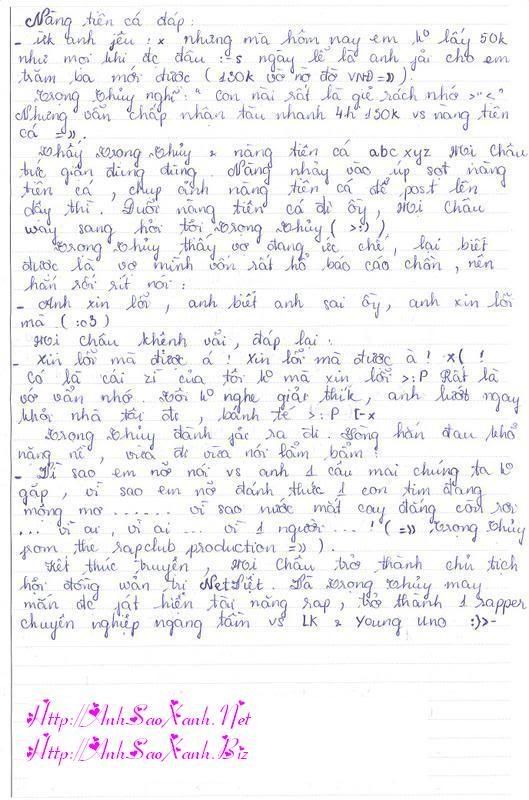 Nàng tiên cá đáp:
- ừk anh yêu : x nhưng mà hôm nay em k° lấy 50k
như mọi khi đc đâu :-s ngày lễ là anh fải cho em
trăm ba mới được ( 130k vờ nờ đờ VNĐ =)) ).
Trọng Thủy nghĩ : " Con nài rất là giẻ rách nhớ >"<."
Nhưng vẫn chấp nhận tàu nhanh 4h 130k vs nàng tiên
cá =)).
Thấy Trọng Thủy & nàng tiên cá abc xyz Mị Châu
tức giận đùng đùng. Nàng nhảy vào úp sọt nàng
tiên cá, chụp ảnh nàng tiên cá để post lên
dậy thì. Đuổi nàng tiên cá đi ồy, Mị Châu
way sang hỏi tội Trọng Thủy ( >:) ).
Trọng Thủy thấy vợ đang ức chế, lại biết
được là vợ mình vốn rất hổ báo cáo chồn, nên
hắn rối rít nói :
- Anh xin lỗi, anh biết anh sai ồy, anh xin lỗi
mà ( :o3 )
Mị Châu khệnh vãi, đáp lại :
- Xin lỗi mà được á ! Xin lỗi mà được à ! x( !
Có là cái zì của tôi k° mà xin lỗi >:P Rất là
vớ vẩn nhớ. Tôi k° nghe giải thík, anh lướt ngay
khỏi nhà tôi đi, bánh tẻ >:P [-x
Trọng Thủy đành fải ra đi. Lòng hắn đau khổ
nặng nề, vừa đi vừa nói lẩm bẩm :
- Vì sao em nỡ nói vs anh 1 câu mai chúng ta k°
gặp, vì sao em nỡ đánh thức 1 con tim đang
mộng mơ ...... vì sao nước mắt cay đắng còn rơi
... vì ai, vì ai ... vì 1 người ... ! ( =)) Trọng Thủy
from the rapclub production =)) ).
Kết thúc truyện, Mị Châu trở thành chủ tịch
hội đồng wản trị NetViệt. Và Trọng Thủy may
mắn đc fát hiện tài năng rap, trở thành 1 rapper
chuyên nghiệp ngang tầm vs LK & Young Uno :)>-
Http://AnhSaoXanh.Net
Http://AnhSaoXanh.Biz